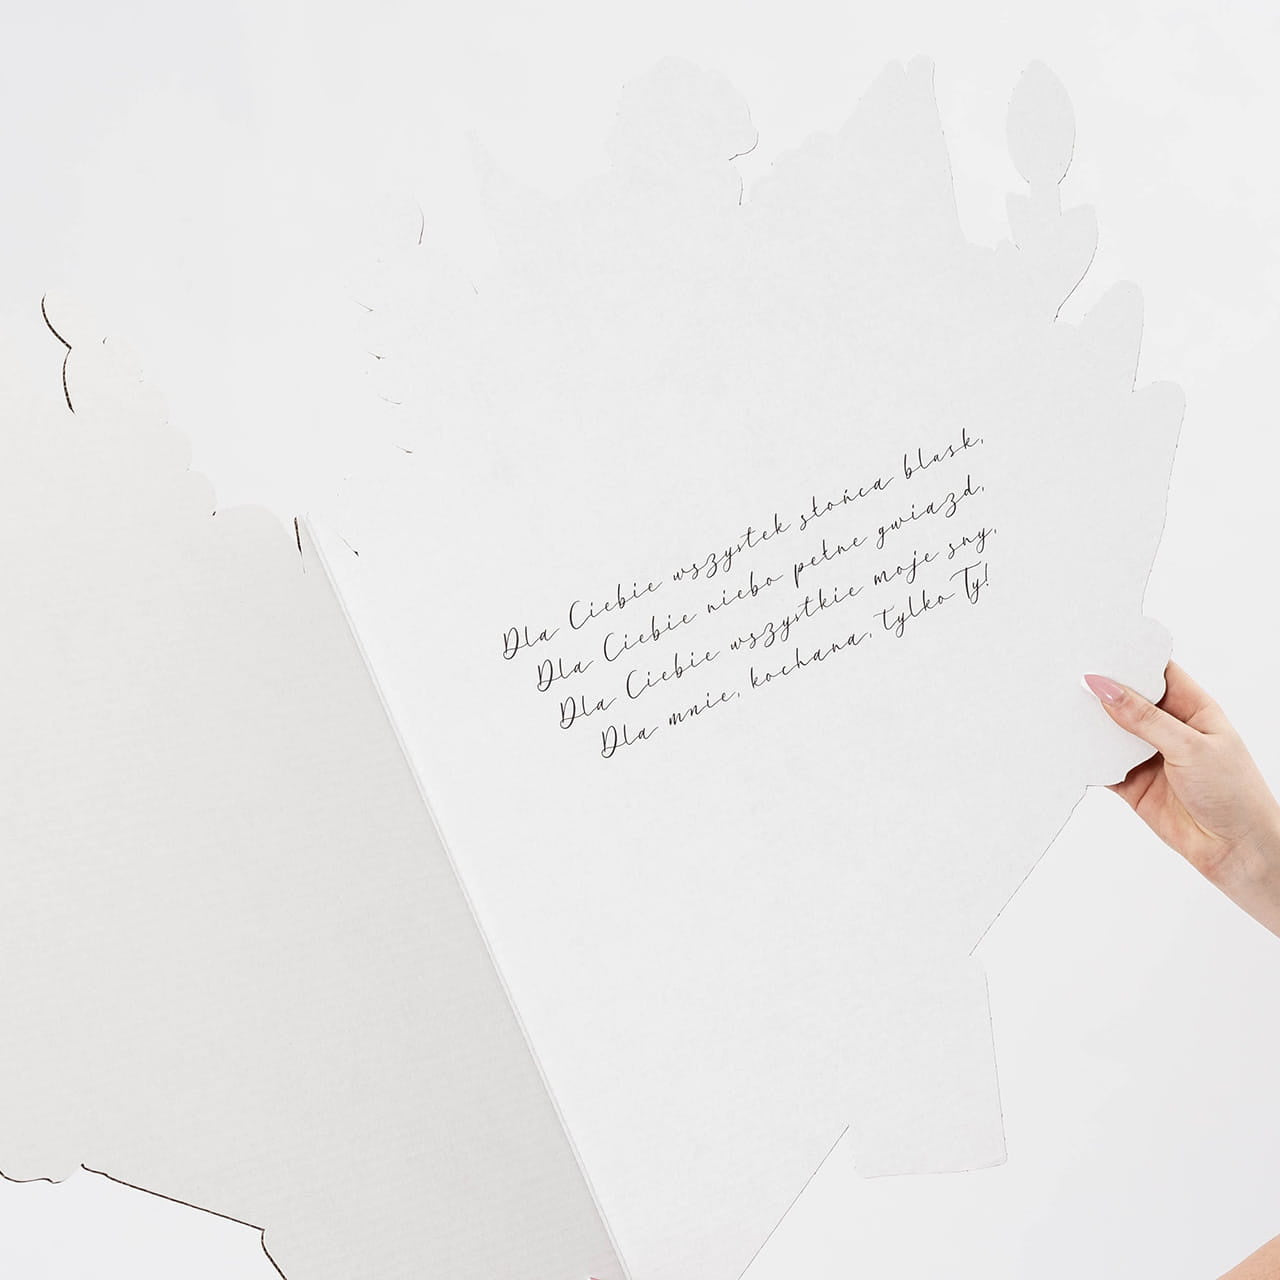 Dla Ciebie wszystek słońca blask,
Dla Ciebie niebo pełne gwiazd,
Dla Ciebie wszystkie moje sny,
Dla mnie, kochana, tylko Ty!